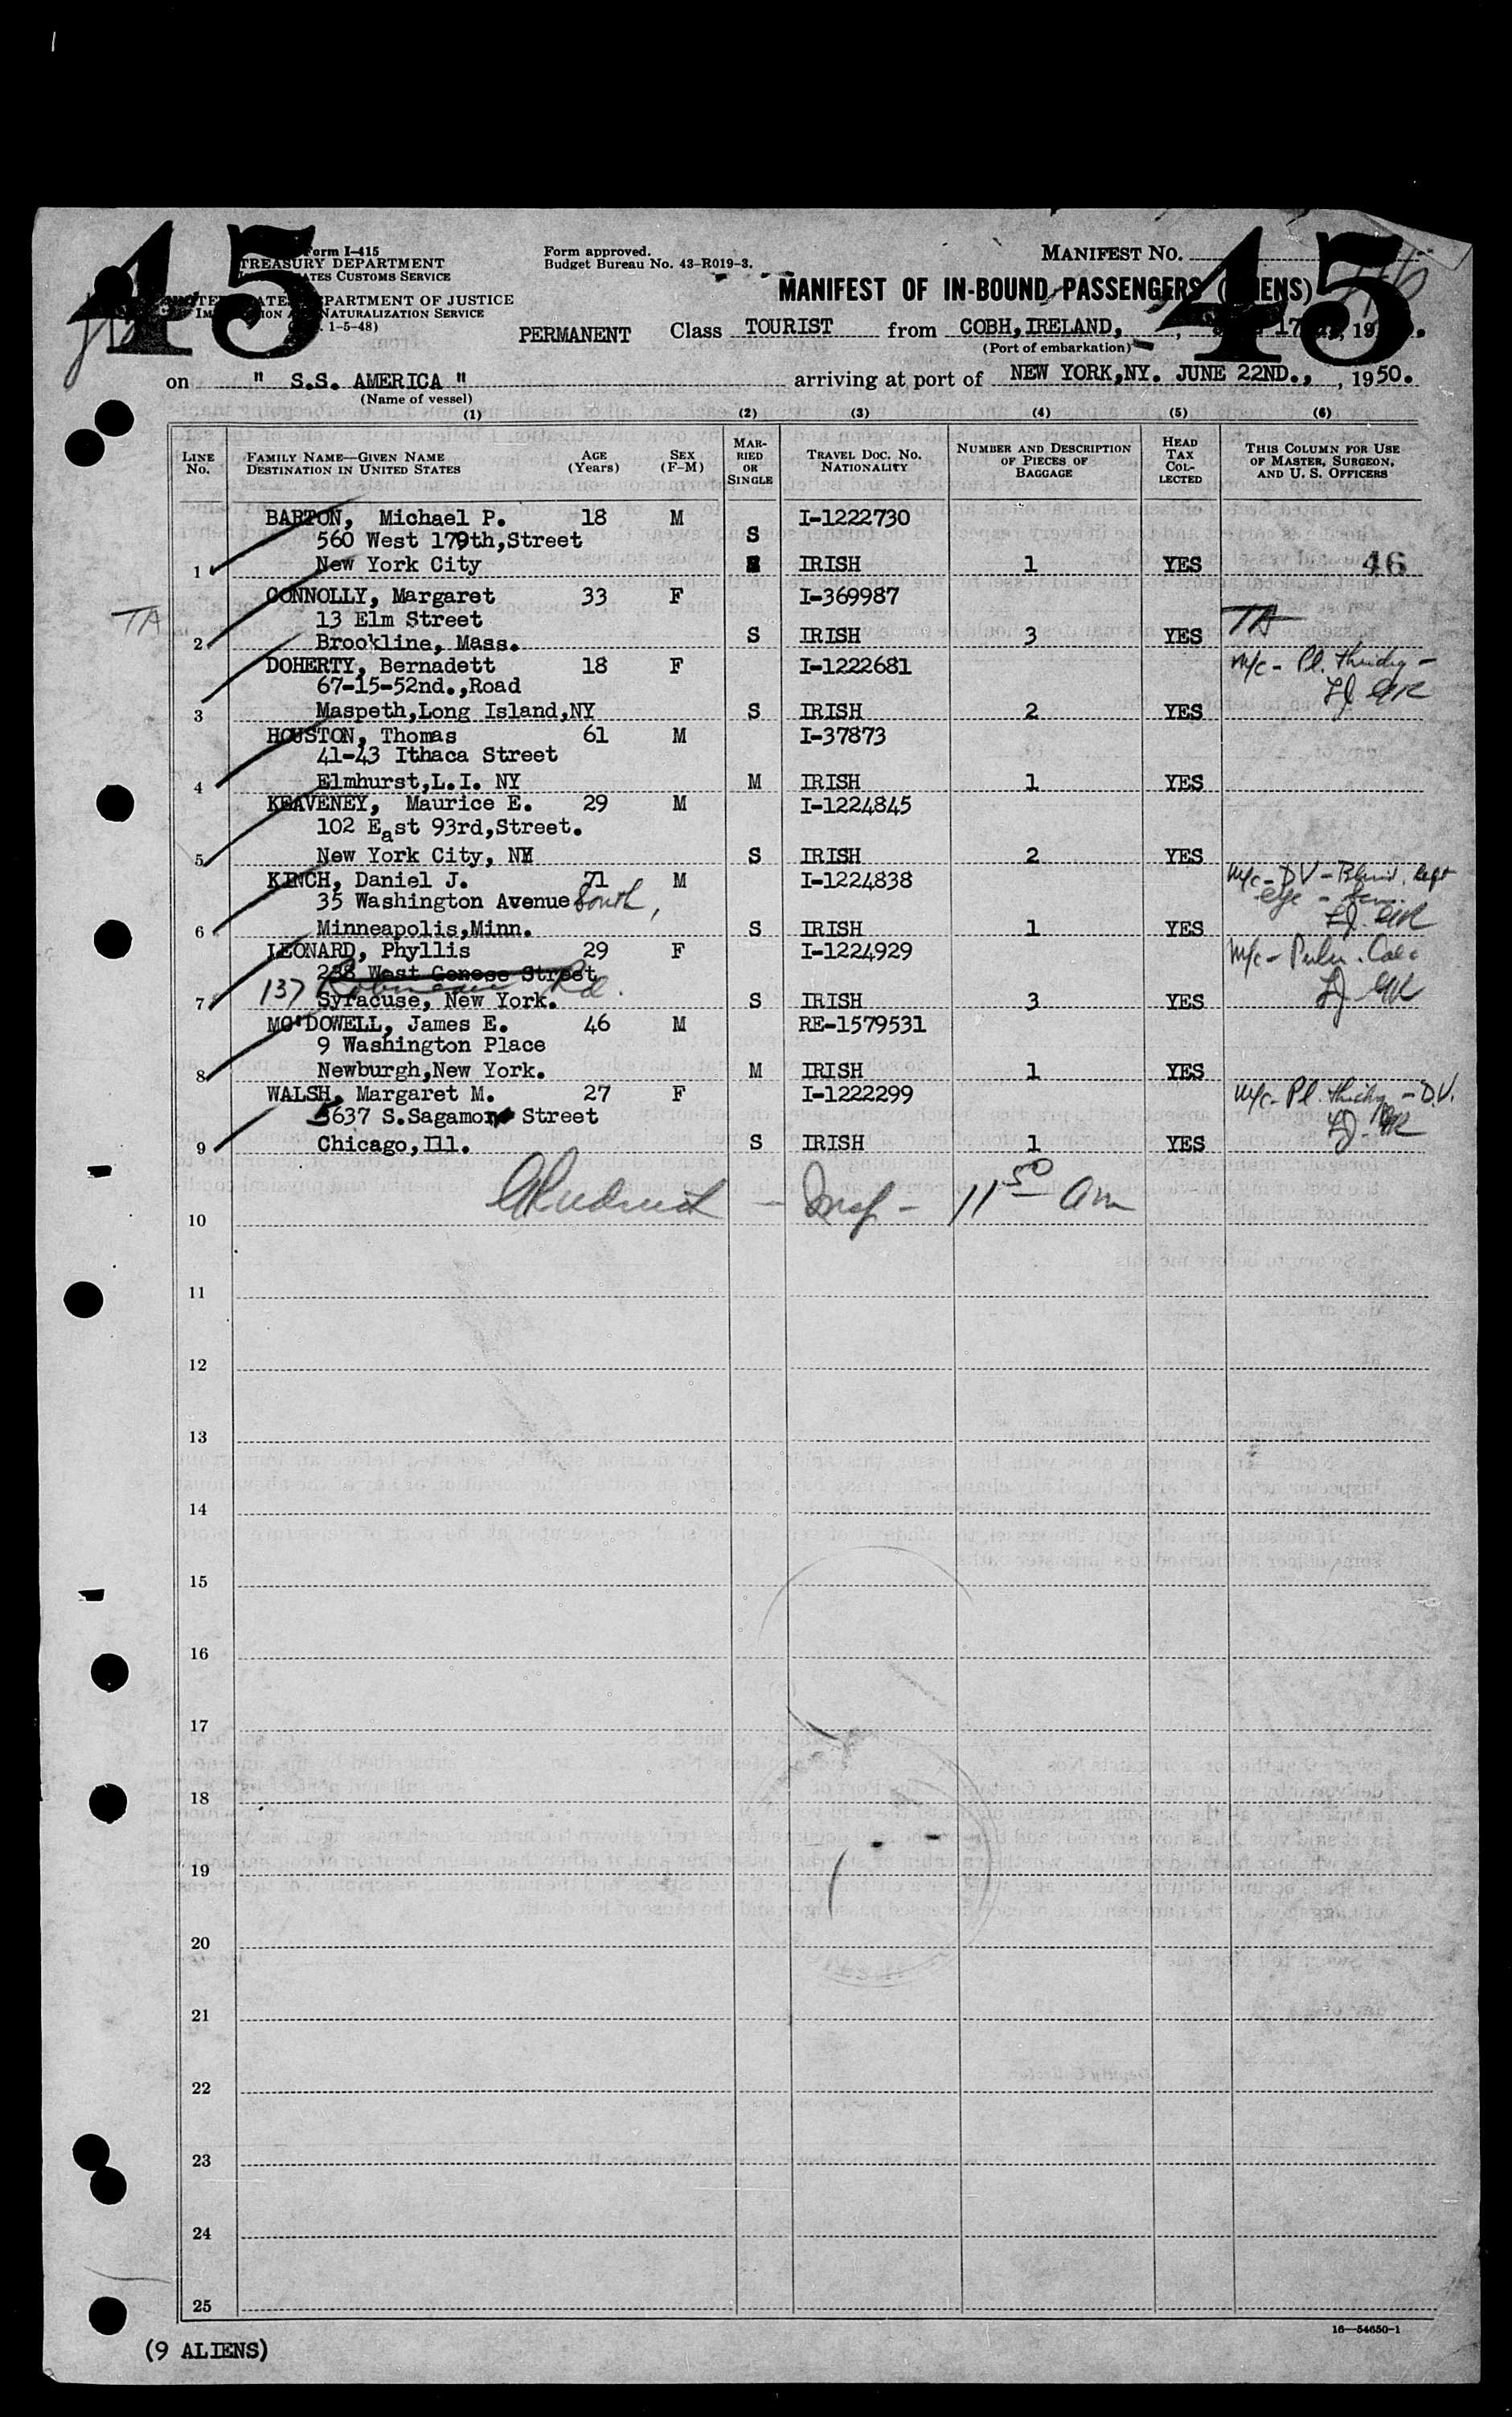 45
45
Form I-415
TREASURY DEPARTMENT
CUSTOMS SERVICE
DEPARTMENT OF JUSTICE
NATURALIZATION SERVICE
1-5-48)
Form approved.
Budget Bureau No. 43-R019-3.
MANIFEST NO.
MANIFEST OF IN-BOUND PASSENGERS (ALIENS)
PERMANENT Class TOURIST from COBH, IRELAND, 17
(Port of embarkation)
on " S.S. AMERICA " arriving at port of NEW YORK,NY. JUNE 22ND., , 1950.
(Name of vessel)
(1) (2) (3) (4) (5) (6)
LINE NO. FAMILY NAME—GIVEN NAME DESTINATION IN UNITED STATES AGE (Years) SEX (F-M) MARRIED OR SINGLE TRAVEL DOC. NO. NATIONALITY NUMBER AND DESCRIPTION OF PIECES OF BAGGAGE HEAD TAX COLLECTED THIS COLUMN FOR USE OF MASTER, SURGEON, AND U. S. OFFICERS
BARTON, Michael P. 18 M I-1222730
560 West 179th,Street S
1 New York City IRISH 1 YES 46
CONNOLLY, Margaret 33 F I-369987
TA 13 Elm Street TA
2 Brookline, Mass. S IRISH 3 YES
DOHERTY, Bernadett 18 F I-1222681 M/c - Pl.
67-15-52nd.,Road
3 Maspeth,Long Island,NY S IRISH 2 YES
HOUSTON, Thomas 61 M I-37873
41-43 Ithaca Street
4 Elmhurst,L.I. NY M IRISH 1 YES
KEAVENEY, Maurice E. 29 M I-1224845
102 East 93rd,Street.
5 New York City, NY S IRISH 2 YES
KINCH, Daniel J. 71 M I-1224838 M/c - DV - Blind. left
35 Washington Avenue South, eye
6 Minneapolis,Minn. S IRISH 1 YES
LEONARD, Phyllis 29 F I-1224929 M/c - Pulm. Calc
238 West Genese Street
137 Rd.
7 Syracuse, New York. S IRISH 3 YES
MC'DOWELL, James E. 46 M RE-1579531
9 Washington Place
8 Newburgh,New York. M IRISH 1 YES
WALSH, Margaret M. 27 F I-1222299 M/c - Pl. - D.V.
5637 S.Sagamore Street
9 Chicago,Ill. S IRISH 1 YES
10 Insp - 11 50 am
11
12
13
14
15
16
17
18
19
20
21
22
23
24
25
16—54650-1
(9 ALIENS)